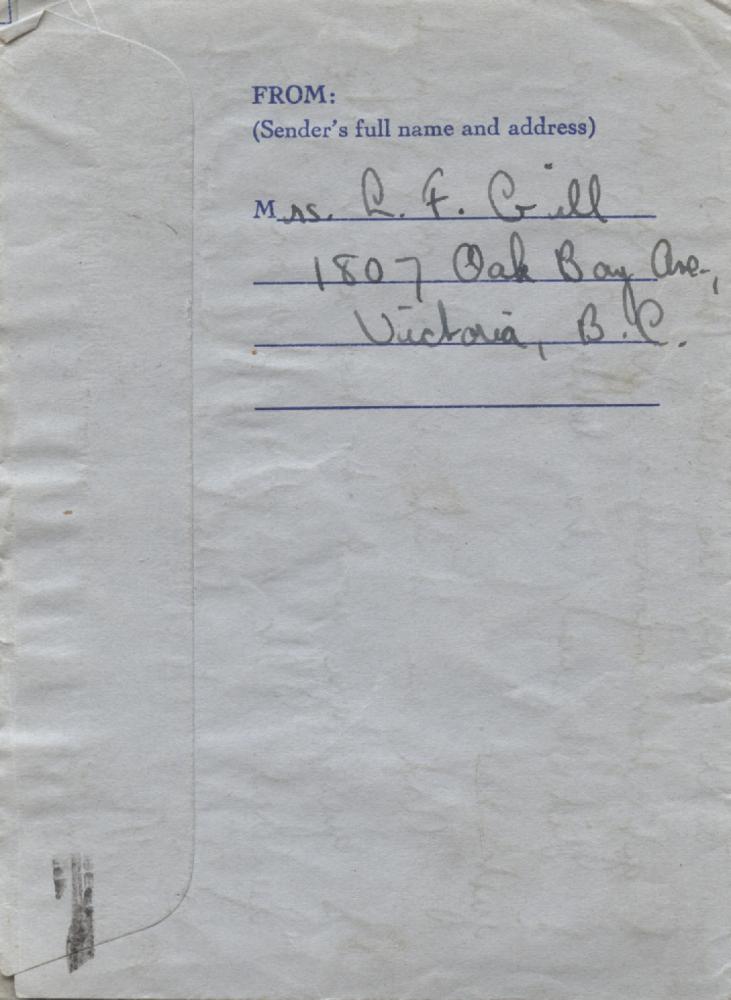 FROM:
(Sender's full name and address)
Mrs. L. F. Gill
1807 Oak Bay Ave.,
Victoria, B.C.